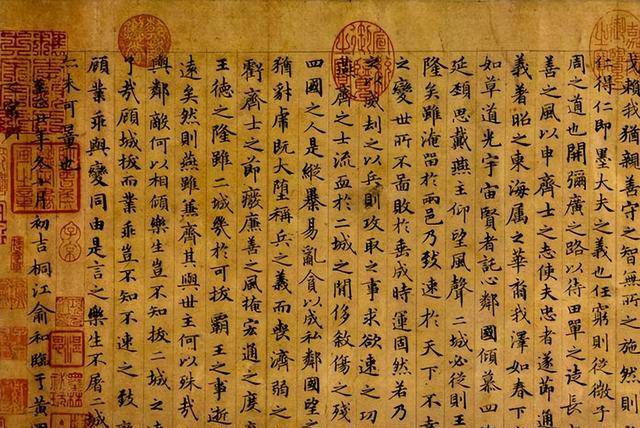 戈賴我猶親善守之智無所之施然則
仁得仁即墨大夫之義也任窮則從微子
周之道也開彌廣之路以待田單之徒長
善之風以申齊士之志使夫忠者遂節通
義著昭之東海屬之華裔我澤如春下
如草道光宇宙賢者託心鄰國傾慕四
延頸思戴燕主仰望風聲二城必從則王
隆矣雖淹留於兩邑乃致速於天下不幸
之變世所不啚敗於垂成時運固然若乃
之以威劫之以兵則攻取之事求欲速之功
燕齊之士流血於二城之閒侈敘傷之殘
四國之人是縱暴易亂貪以成私鄰國望之
猶豺虎既大墮稱兵之義而喪濟弱之
虧齊士之節癈廉善之風掩宏通之度
王德之隆雖二城幾於可拔霸王之事逝
遠矣然則燕雖兼齊其與世主何以殊哉
與鄰敵何以相傾樂生豈不知拔二城之
了哉顧城拔而業乖豈不知不速之致
顧業乖與變同由是言之樂生不屠二城
亦未可量也
廿年冬月初吉桐江俞和臨于黃